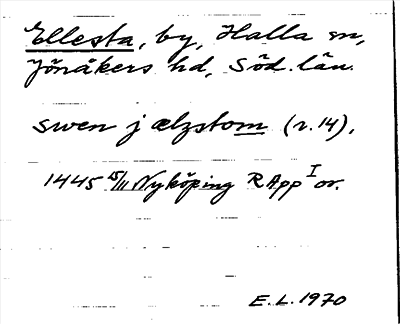 Ellesta, by, Halla sn,
Jönåkers hd, Söd. län.
swen j ælzstom (r. 14).
1445 15/11 Nyköping RApp I or.
E.L. 1970